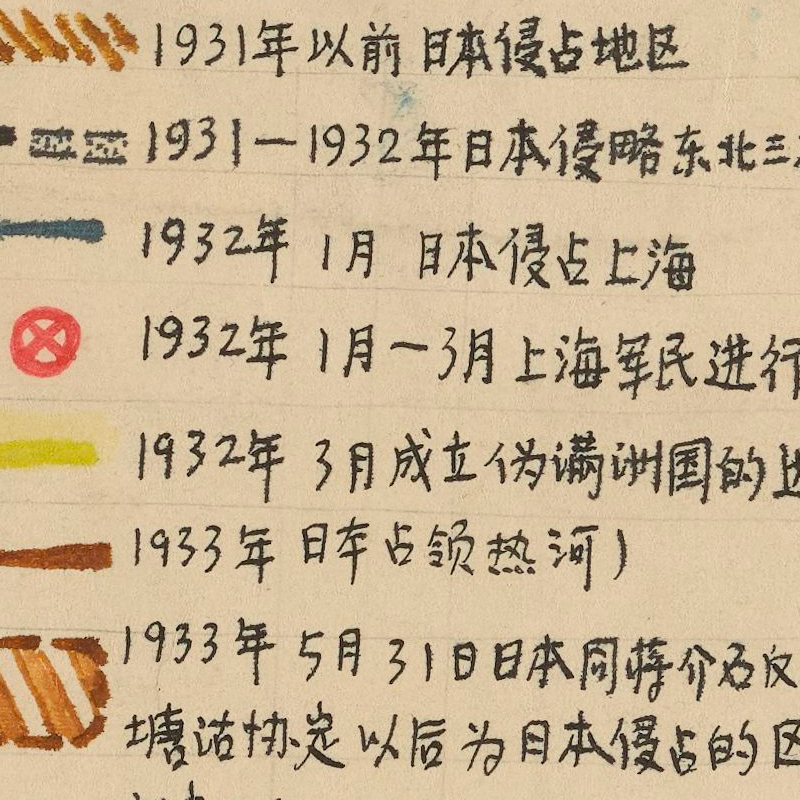 1931年以前日本侵占地区
1931—1932年日本侵略东北三
1932年 1月 日本侵占上海
1932年 1月—3月上海军民进行
1932年 3月成立伪满洲国的
1933年 日本占领热河)
1933年 5月31日日本同蒋介石
塘沽协定以后为日本侵占的区